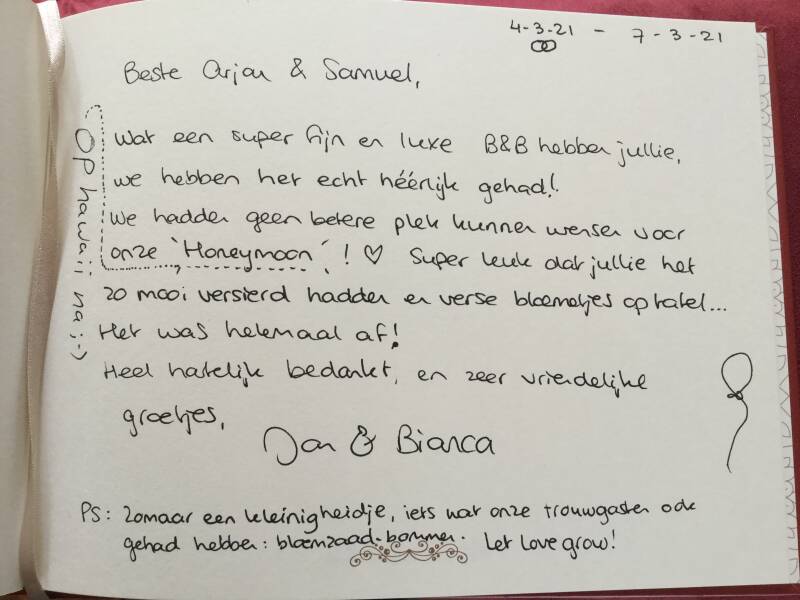 4-3-21 - 7-3-21
Beste Arjan & Samuel,
Wat een super fijn en luxe B&B hebben jullie,
we hebben het echt héérlijk gehad!
We hadden geen betere plek kunnen wensen voor
onze 'Honeymoon'! ♡ Super leuk dat jullie het
zo mooi versierd hadden en verse bloemetjes op tafel...
Het was helemaal af!
Heel hartelijk bedankt, en zeer vriendelijke
groetjes,
Jan & Bianca
Op hawaii na ;-)
PS: Zomaar een kleinigheidje, iets wat onze trouwgasten ook
gehad hebben: bloemzaad-bommen. Let love grow!